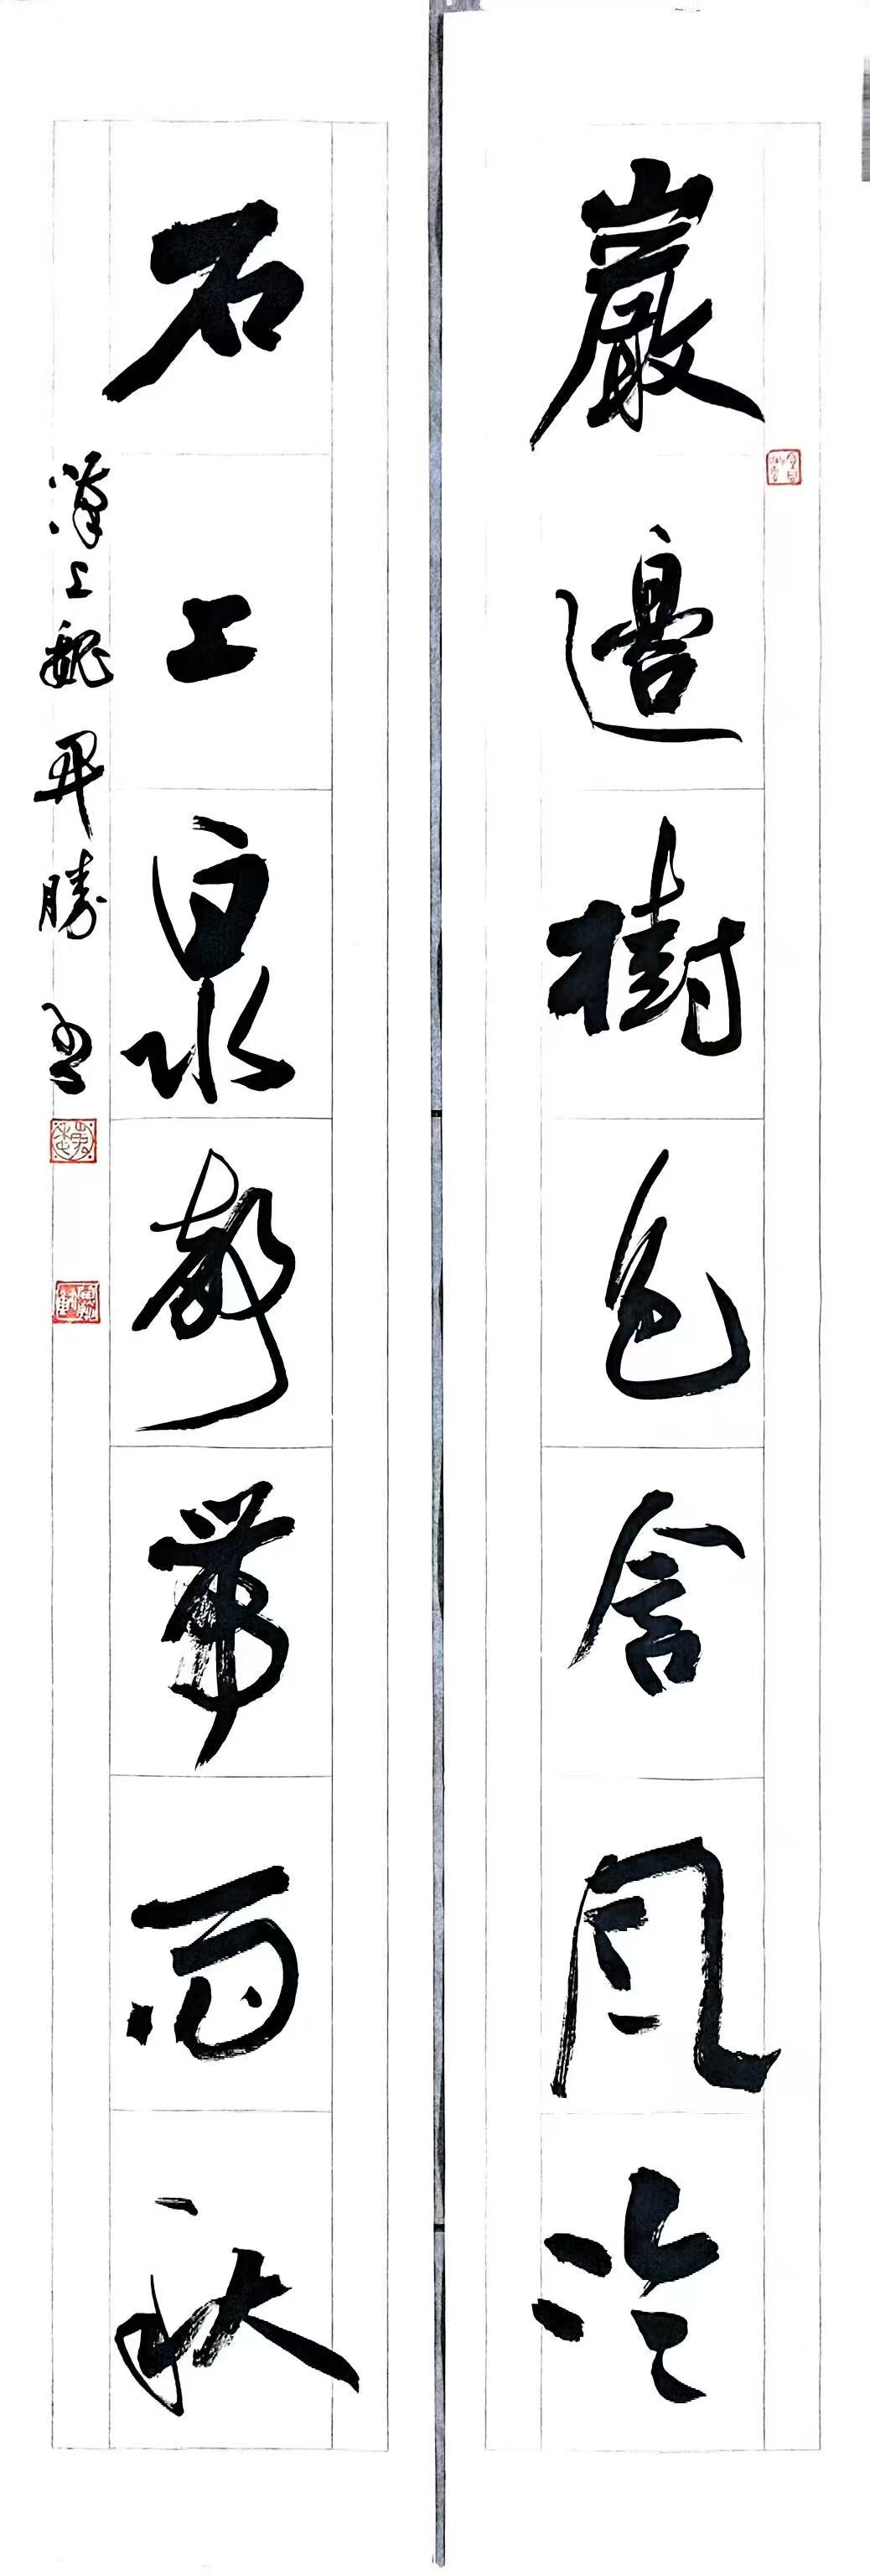 巖邊樹色含風冷
石上泉聲帶雨秋
漢上魏開勝書